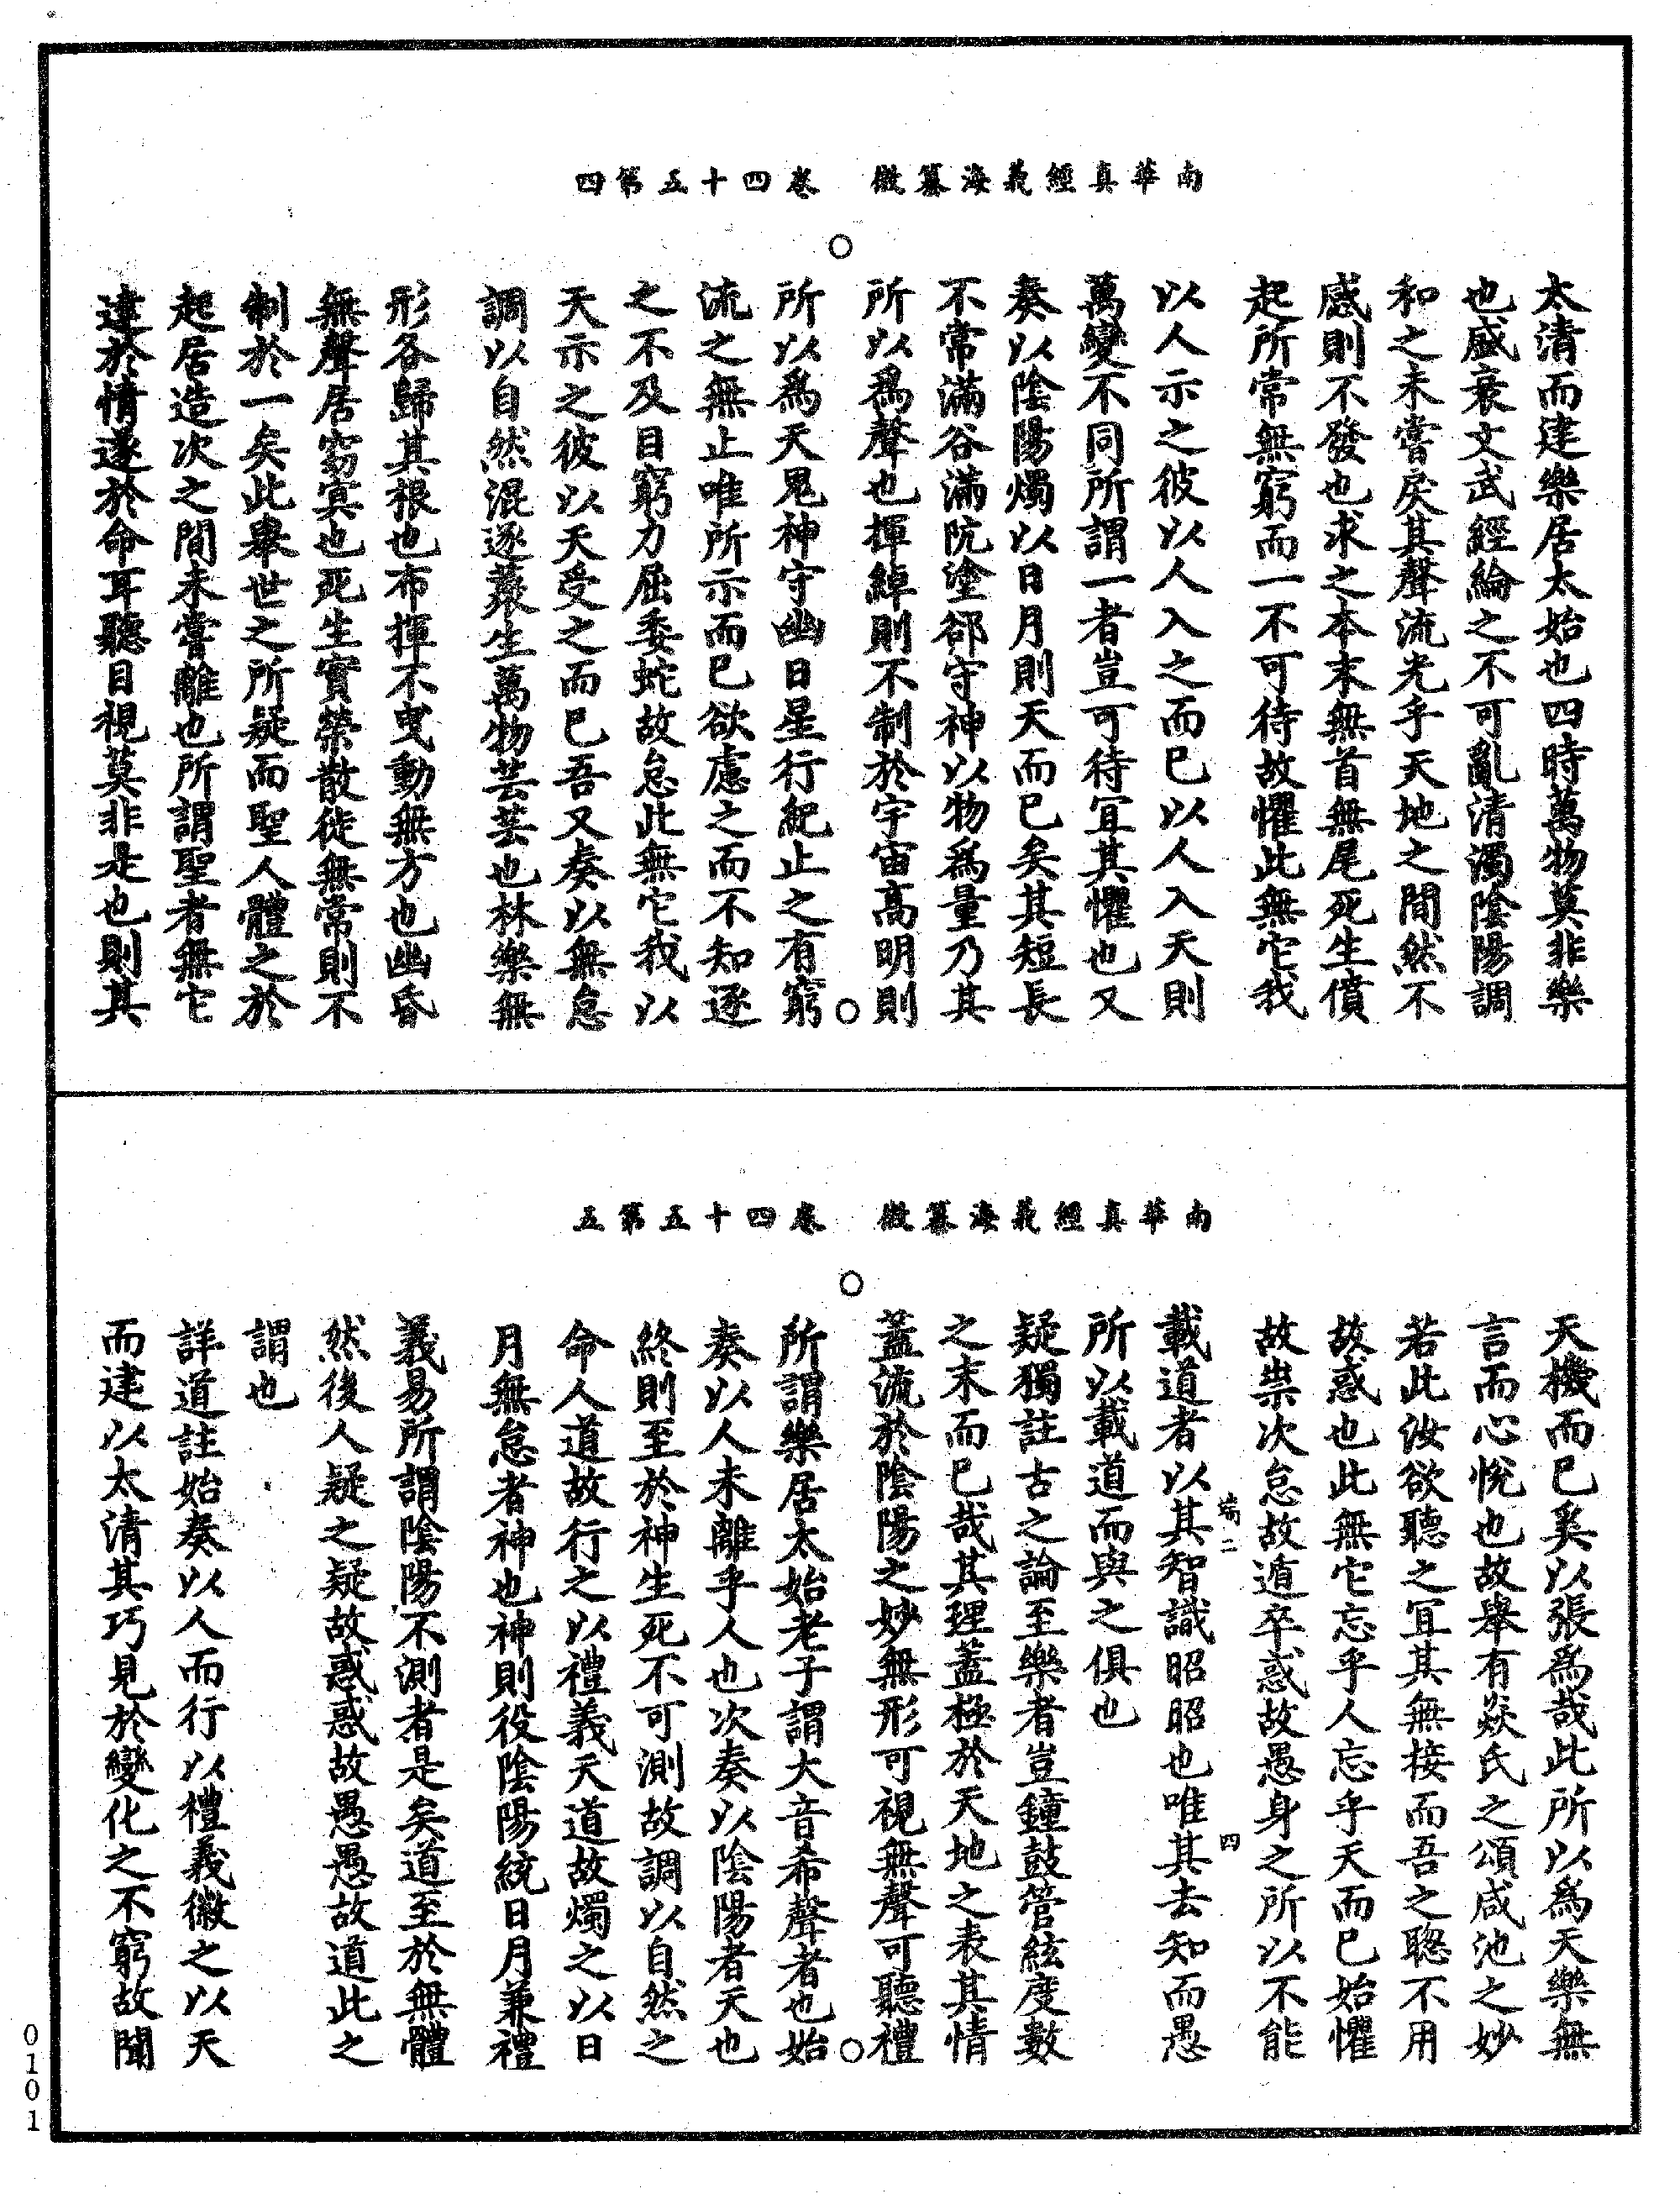 南華真經義海纂微　卷四十五第四
太清而建樂居太始也四時萬物莫非樂
也盛衰文武經綸之不可亂清濁陰陽調
和之未嘗戾其聲流光乎天地之間然不
感則不發也求之本末無首無尾死生僨
起所常無窮而一不可待故懼此無它我
以人示之彼以人入之而已以人入天則
萬變不同所謂一者豈可待冝其懼也又
奏以陰陽燭以日月則天而已矣其短長
不常滿谷滿阬塗郤守神以物爲量乃其
所以爲聲也揮綽則不制於宇宙高明則
所以爲天鬼神守幽日星行紀止之有窮
流之無止唯所示而已欲慮之而不知逐
之不及目窮力屈委蛇故怠此無它我以
天示之彼以天受之而已吾又奏以無怠
調以自然混逐藂生萬物芸芸也林樂無
形各歸其根也布揮不曳動無方也幽昏
無聲居窈冥也死生實榮散徙無常則不
制於一矣此舉世之所疑而聖人體之於
起居造次之間未嘗離也所謂聖者無它
達於情遂於命耳聽目視莫非是也則其
南華真經義海纂微　卷四十五第五
天機而已奚以張爲哉此所以爲天樂無
言而心悅也故舉有焱氏之頌咸池之妙
若此汝欲聽之冝其無接而吾之聰不用
故惑也此無它忘乎人忘乎天而已始懼
故祟次怠故遁卒惑故愚身之所以不能
載道者以其智識昭昭也唯其去知而愚
端二　四
所以載道而與之俱也
疑獨註古之論至樂者豈鐘鼓管絃度數
之末而已哉其理蓋極於天地之表其情
蓋流於陰陽之妙無形可視無聲可聽禮
所謂樂居太始老子謂大音希聲者也始
奏以人未離乎人也次奏以陰陽者天也
終則至於神生死不可測故調以自然之
命人道故行之以禮義天道故燭之以日
月無怠者神也神則役陰陽統日月兼禮
義易所謂陰陽不測者是矣道至於無體
然後人疑之疑故惑惑故愚愚故道此之
謂也
詳道註始奏以人而行以禮義徽之以天
而建以太清其巧見於變化之不窮故聞
0101